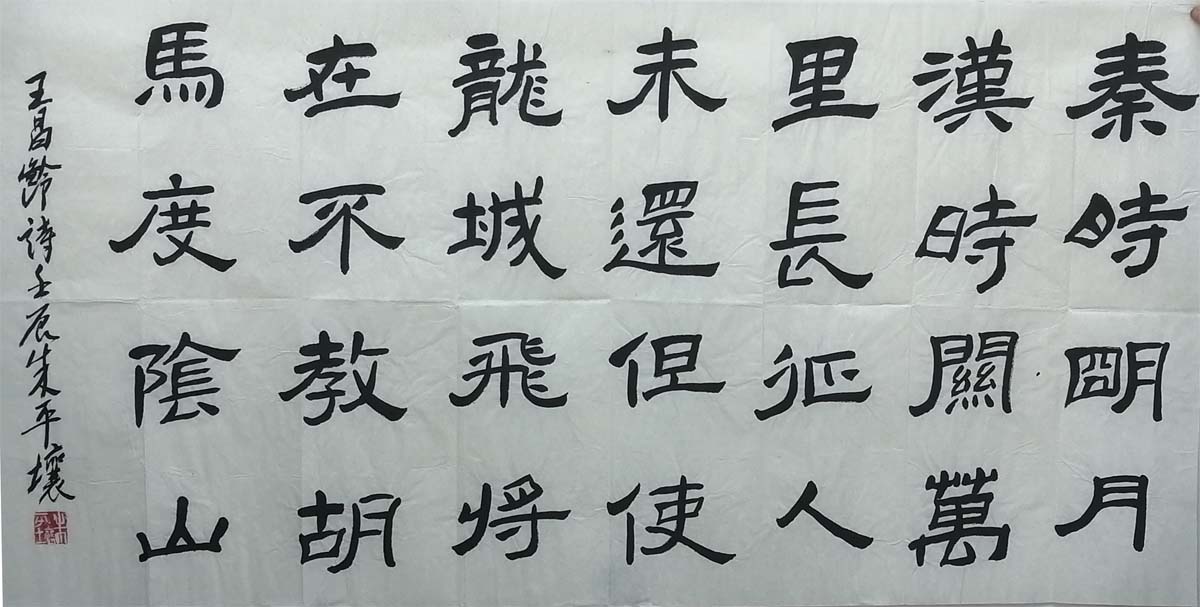 秦時朙月
漢時關萬
里長征人
未還但使
龍城飛将
在不教胡
馬度陰山
王昌齡詩壬辰朱平壤